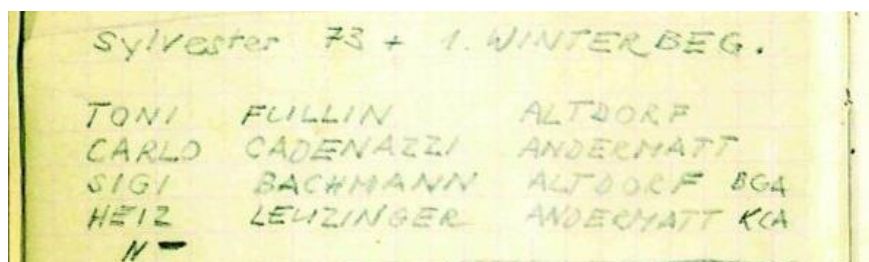 Sylvester 73 + 1. WINTERBEG.
TONI FULLIN ALTDORF
CARLO CADENAZZI ANDERMATT
SIGI BACHMANN ALTDORF BGA
HEIZ LEUZINGER ANDERMATT KCA